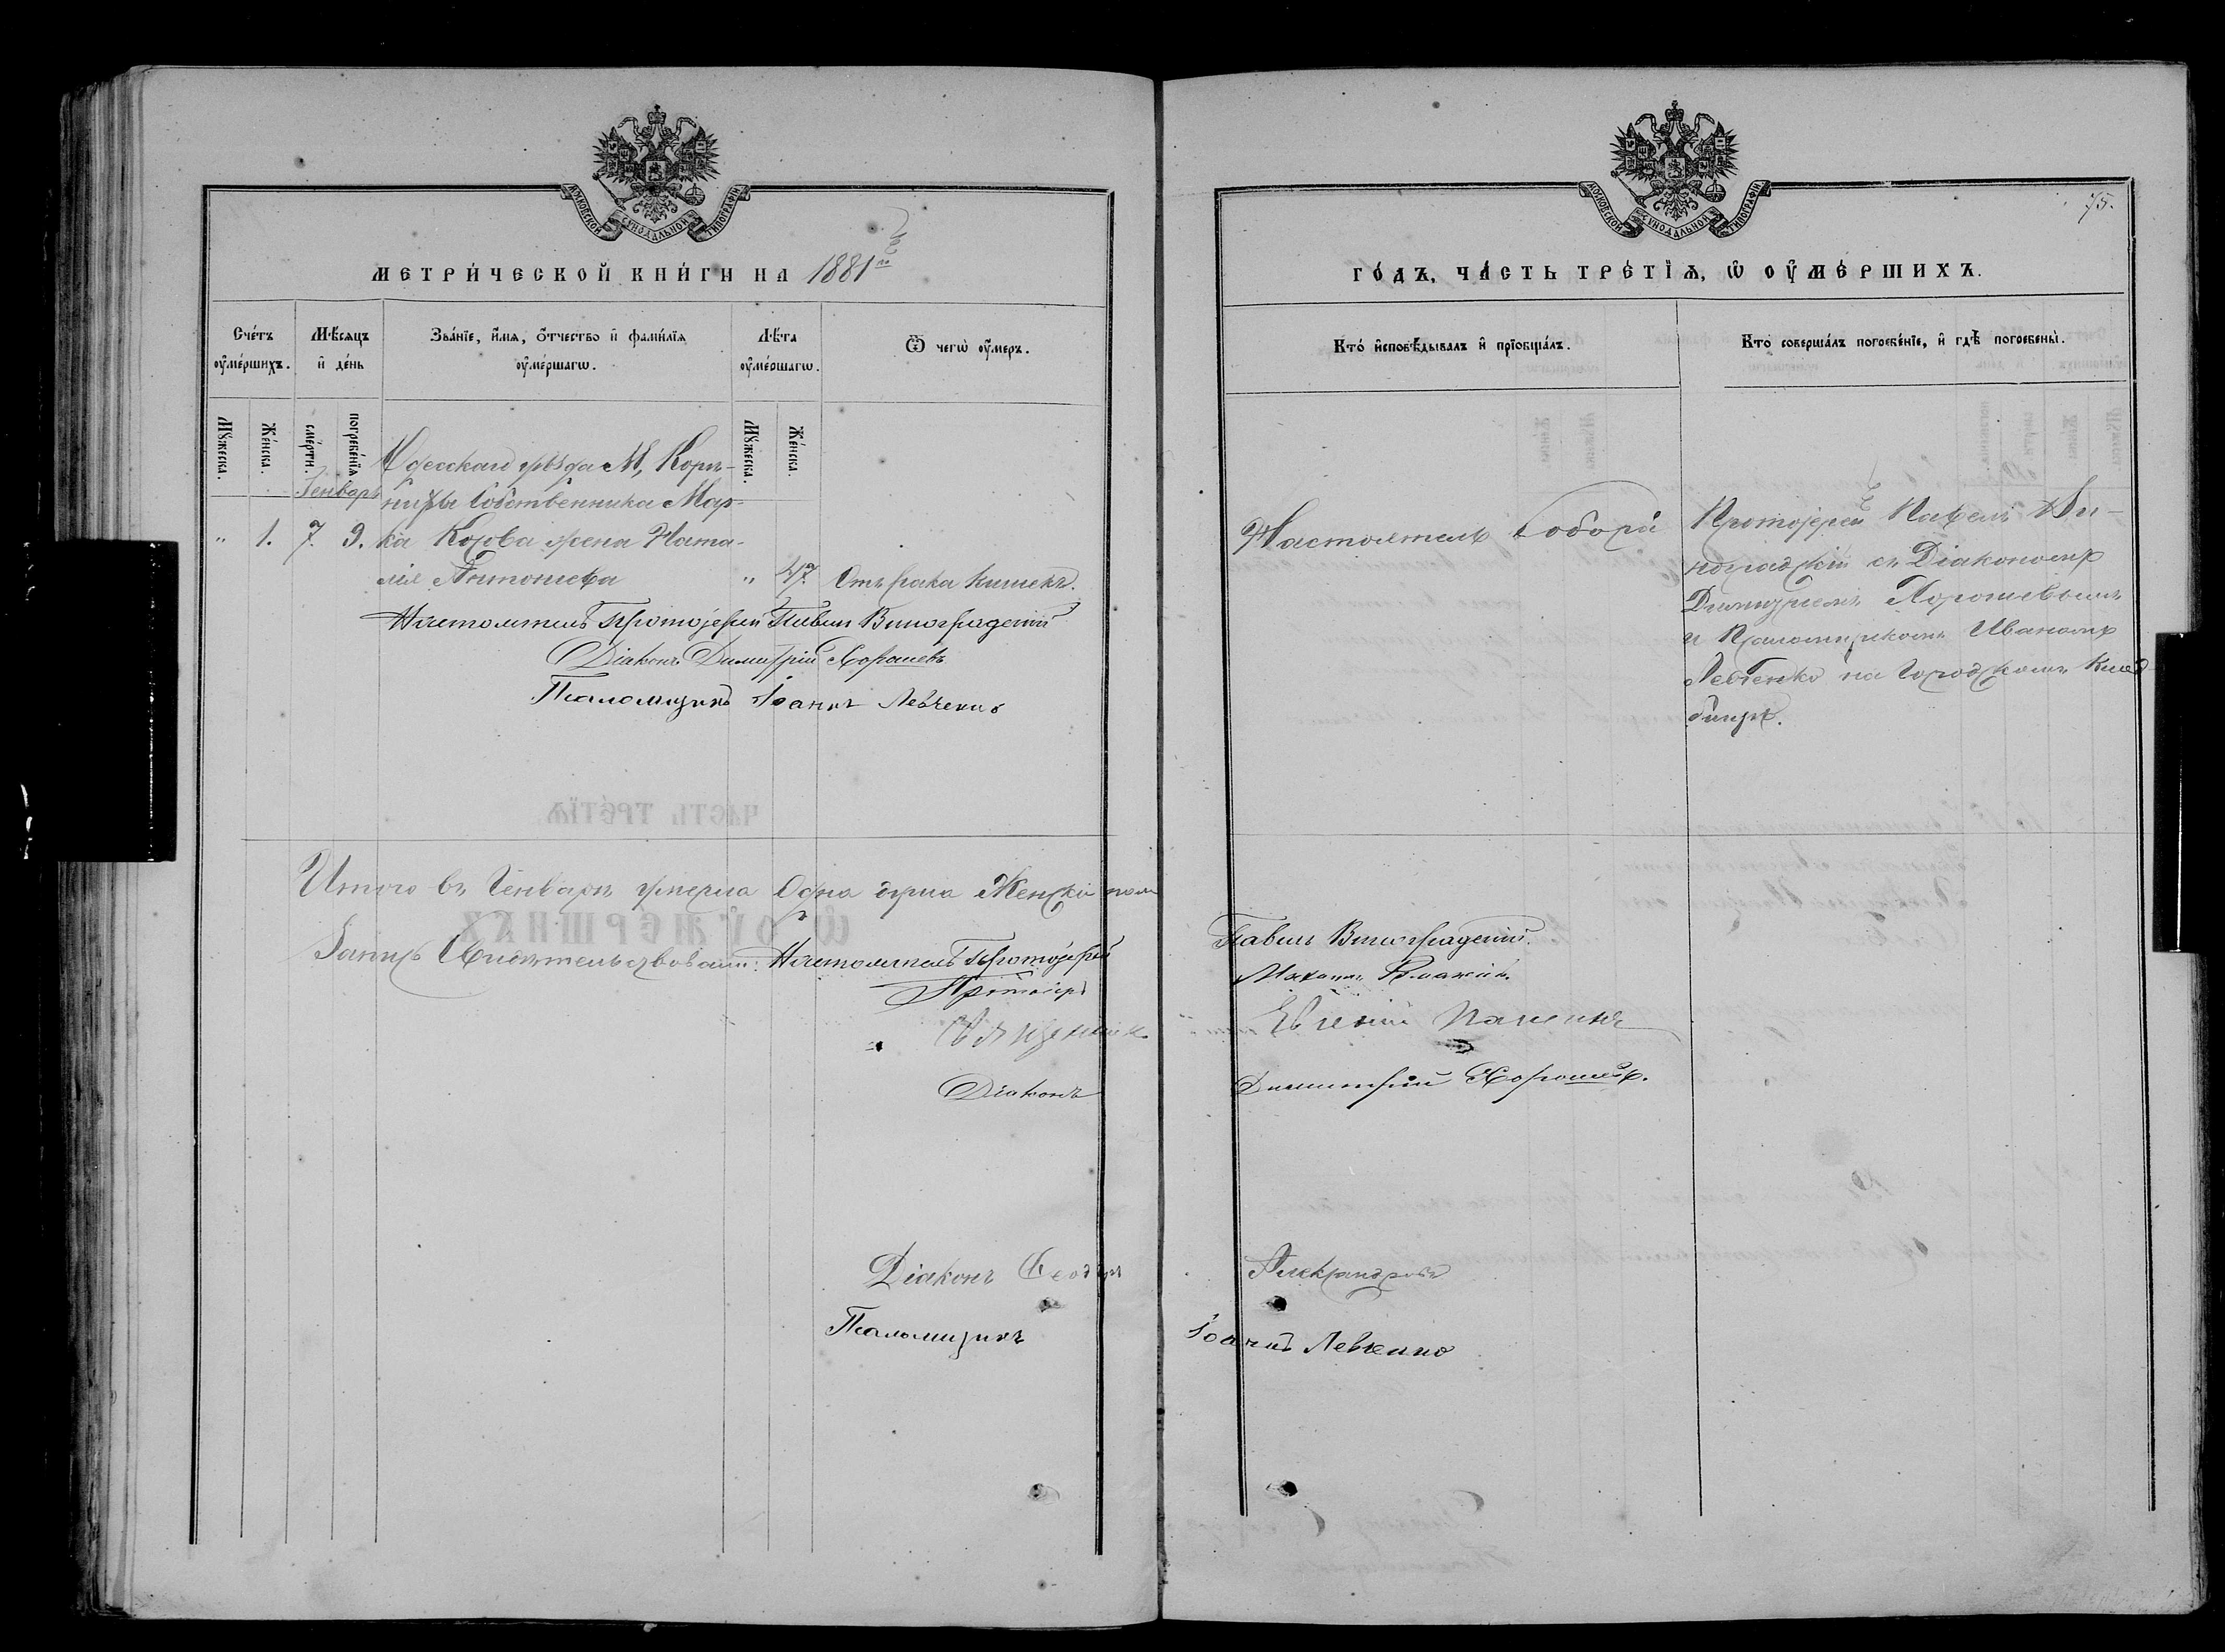 МОСКОВСКОЙ СѴНОДАЛЬНОЙ ТИПОГРАФІИ
МЕТРИ́ЧЕСКОЙ КНИ́ГИ НА 1881й
Сче́тъ ᲂу҆ме́ршихъ.
Мѣ́сяцъ и҆ де́нь
Зва́нїе, и҆́мѧ, ѻ҆́тчество и҆ фами́лїѧ ᲂу҆ме́ршагѡ.
Лѣ́та ᲂу҆ме́ршагѡ.
Ѿ чегѡ̀ ᲂу҆́меръ.
Мꙋ́жеска.
Же́нска.
сме́рти.
погребе́нїѧ
Мꙋ́жеска.
Же́нска.
Генварь
Одесскаго уѣзда М,
ницы Собственника Мар-
" 1. 7. 9. ка Козова жена Ната-
лія Антонова " 47. Отъ рака кишекъ.
Настоятель Протоіерей Павелъ Виноградскій
Діаконъ Димитрій Хорошевъ
Псаломщикъ Іоаннъ Левченко
Итого въ Генварѣ умерла Одна душа Женска пола
Запись Свидѣтельствовали: Настоятель Протоіерей
Протоіер
Священник
Діаконъ
Діаконъ Ѳеодоръ
Псаломщикъ
МОСКОВСКОЙ СѴНОДАЛЬНОЙ ТИПОГРАФІИ
75.
ГО́ДЪ, ЧА́СТЬ ТРЕ́ТЇѦ, Ѡ҆ ОУ҆МЕ́РШИХЪ.
Кто̀ и҆сповѣ́дывалъ и҆ прїобща́лъ.
Кто̀ соверша́лъ погребе́нїе, и҆ гдѣ̀ погребены̀.
Настоятель Собора
Протоіерей Павелъ Ви-
ноградскій съ Діакономъ
Димитріемъ Хорошевымъ
и Псаломщикомъ Иваномъ
Левченко на Городскомъ Клад-
бищѣ.
Павелъ Виноградскій.
Евгеній
Димитрій Хорошевъ.
Александровъ
Іоаннъ Левченко